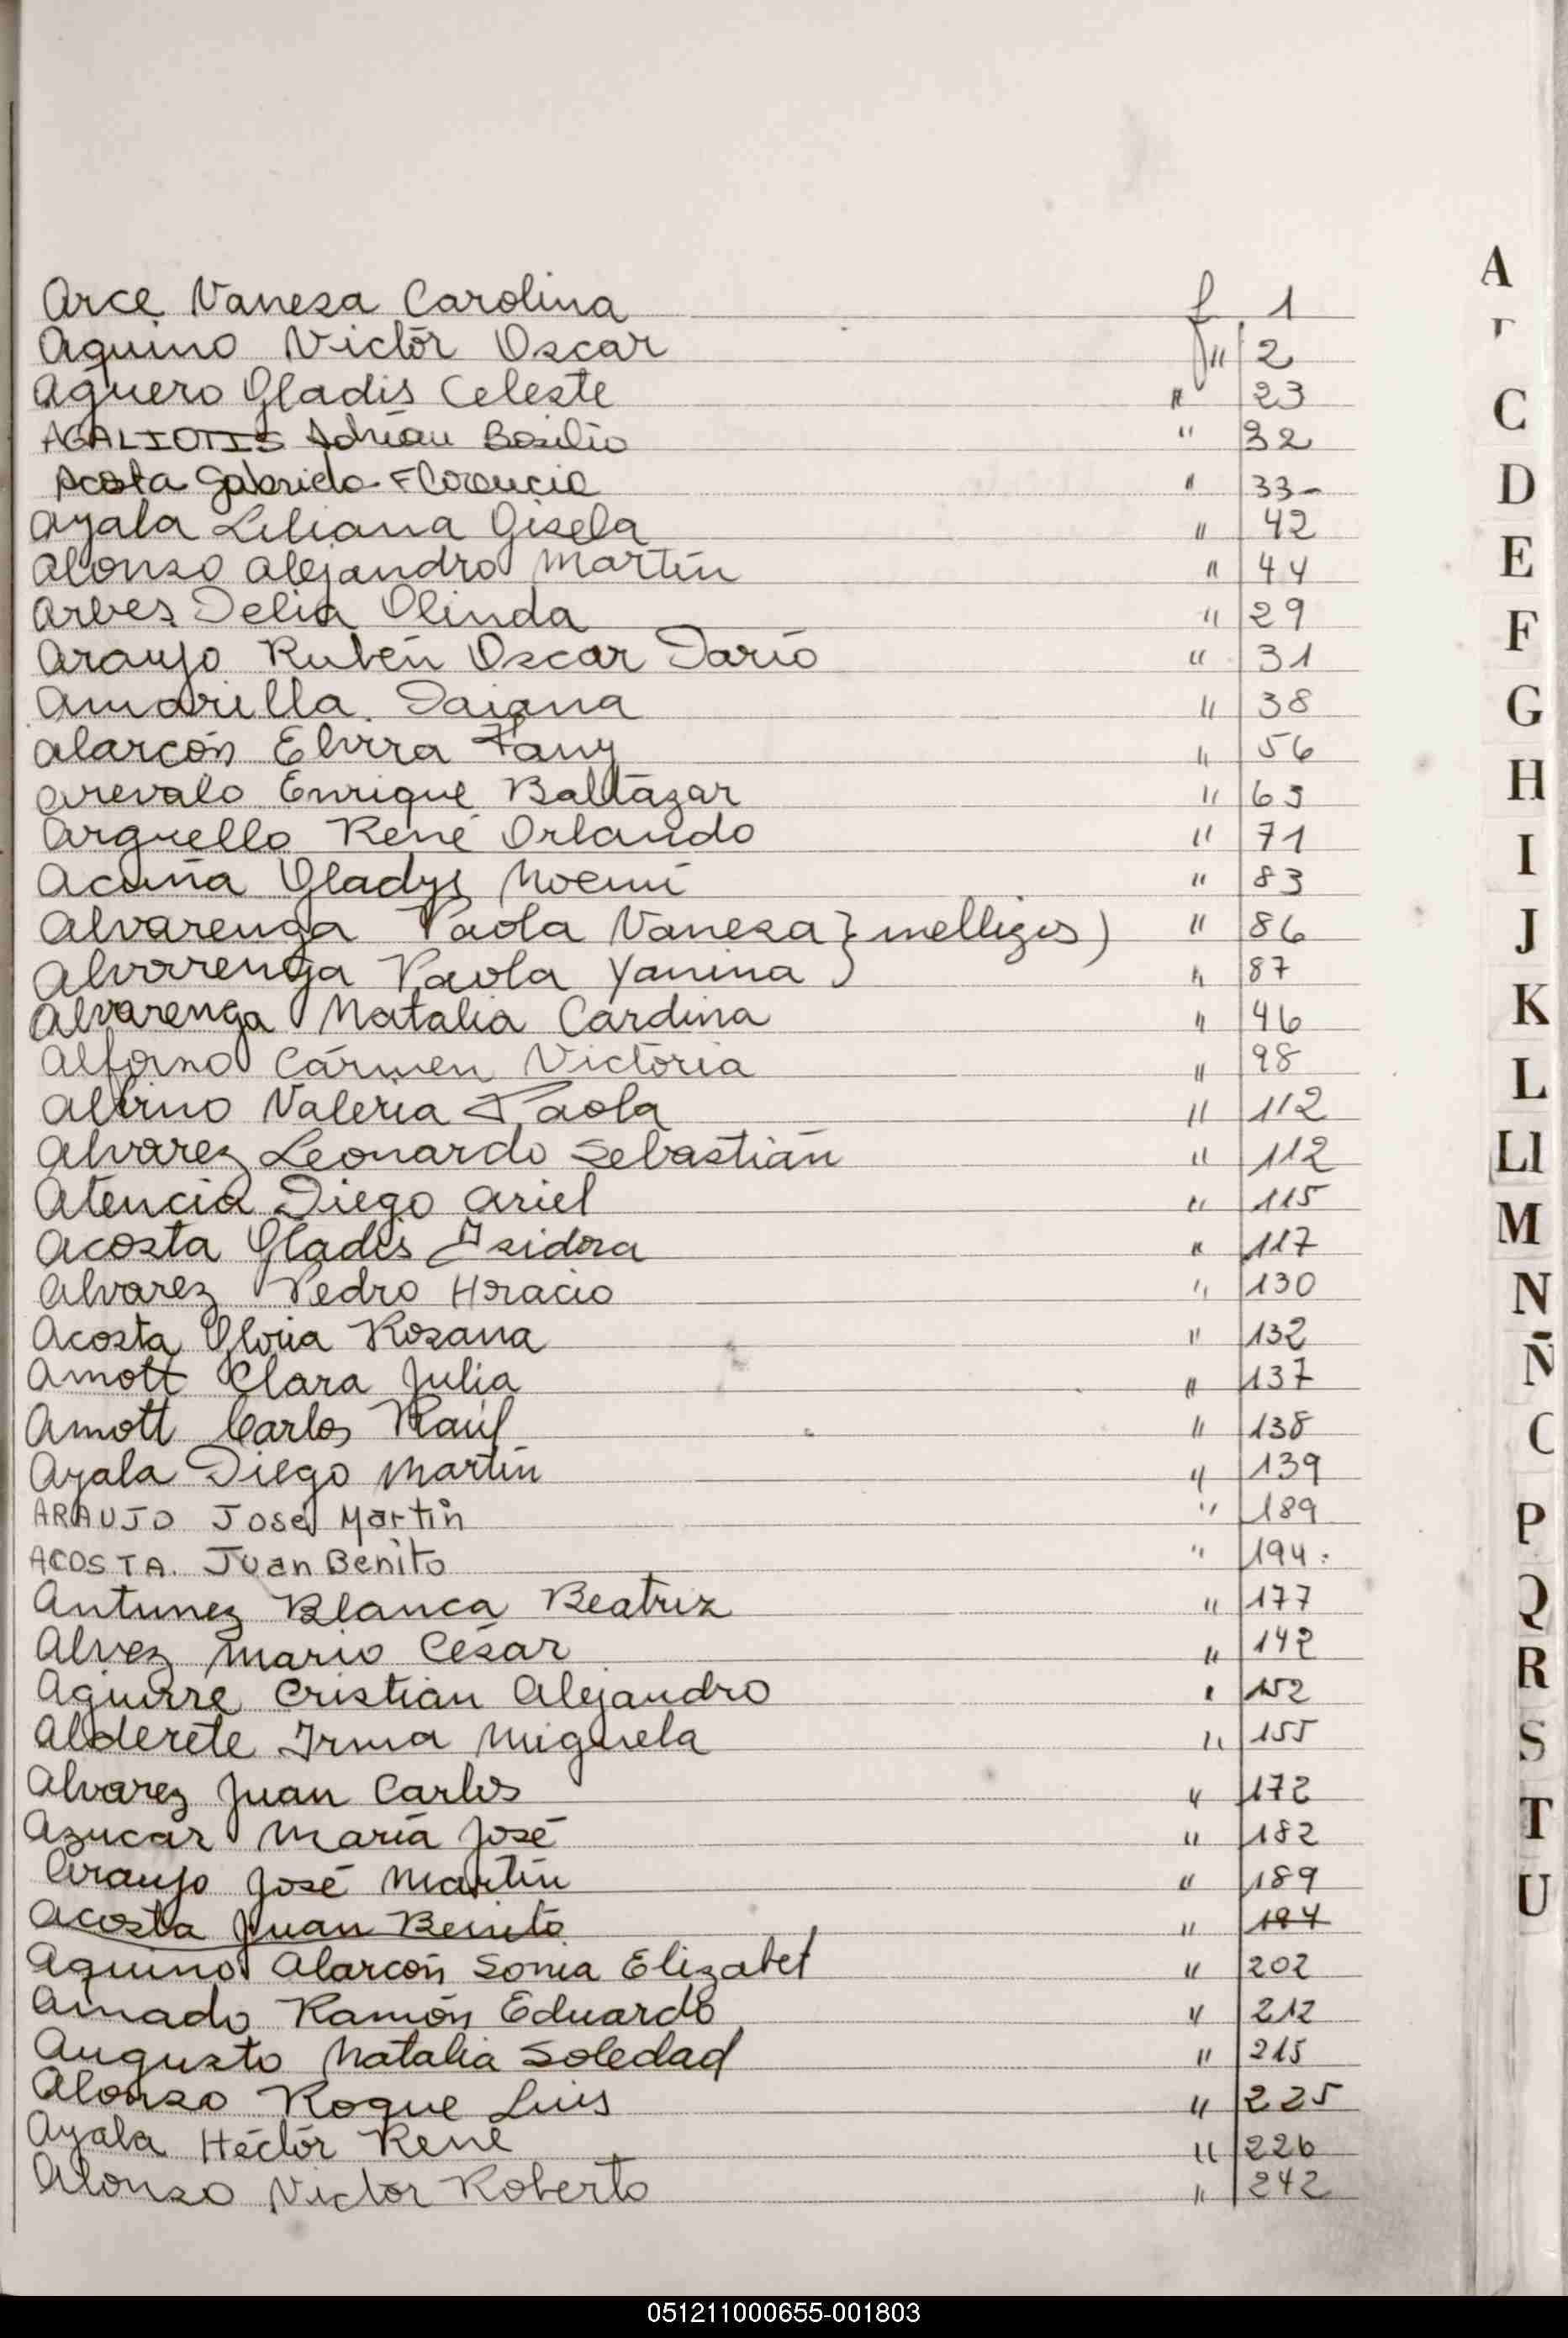 Arce Vanesa Carolina f 1
Aquino Victor Oscar f" 2
Aguero Gladis Celeste " 23
AGALIOTIS Adrián Basilio " 32
Acosta Gabriela Florencia " 33-
Ayala Liliana Gisela " 42
Alonso Alejandro Martín " 44
Arbes Delia Olinda " 29
Araujo Rubén Oscar Darío " 31
Amarilla. Daiana " 38
Alarcón Elvira Fany " 56
Arevalo Enrique Baltazar " 63
Arguello René Orlando " 71
Acuña Gladys Noemí " 83
Alvarenga Paola Vanesa } mellizos) " 86
Alvarenga Paola Yanina } " 87
Alvarenga Natalia Cardina " 46
Alfonso Cármen Victoria " 98
Albino Valeria Paola " 112
Alvarez Leonardo Sebastián " 112
Atencia Diego Ariel " 115
Acosta Gladis Isidora " 117
Alvarez Pedro Hracio " 130
Acosta Gloria Rosana " 132
Amott Clara Julia " 137
Amott Carlos Raúl " 138
Ayala Diego Martín " 139
ARAUJO José Martín " 189
ACOSTA. Juan Benito " 194.
Antunez Blanca Beatriz " 177
Alvez Mario César " 142
Aguirre Cristian Alejandro " 152
Alderete Irma Miguela " 155
Alvarez Juan Carlos " 172
Azucar María José " 182
Araujo José Martín " 189
Acosta Juan Benito " 194
Aquino Alarcón Sonia Elizabet " 202
Amado Ramón Eduardo " 212
Augusto Natalia Soledad " 215
Alonso Roque Luis " 225
Ayala Héctór René " 226
Alonso Victor Roberto " 242
A
C
D
E
F
G
H
I
J
K
L
Ll
M
N
Ñ
P
Q
R
S
T
U
051211000655-001803